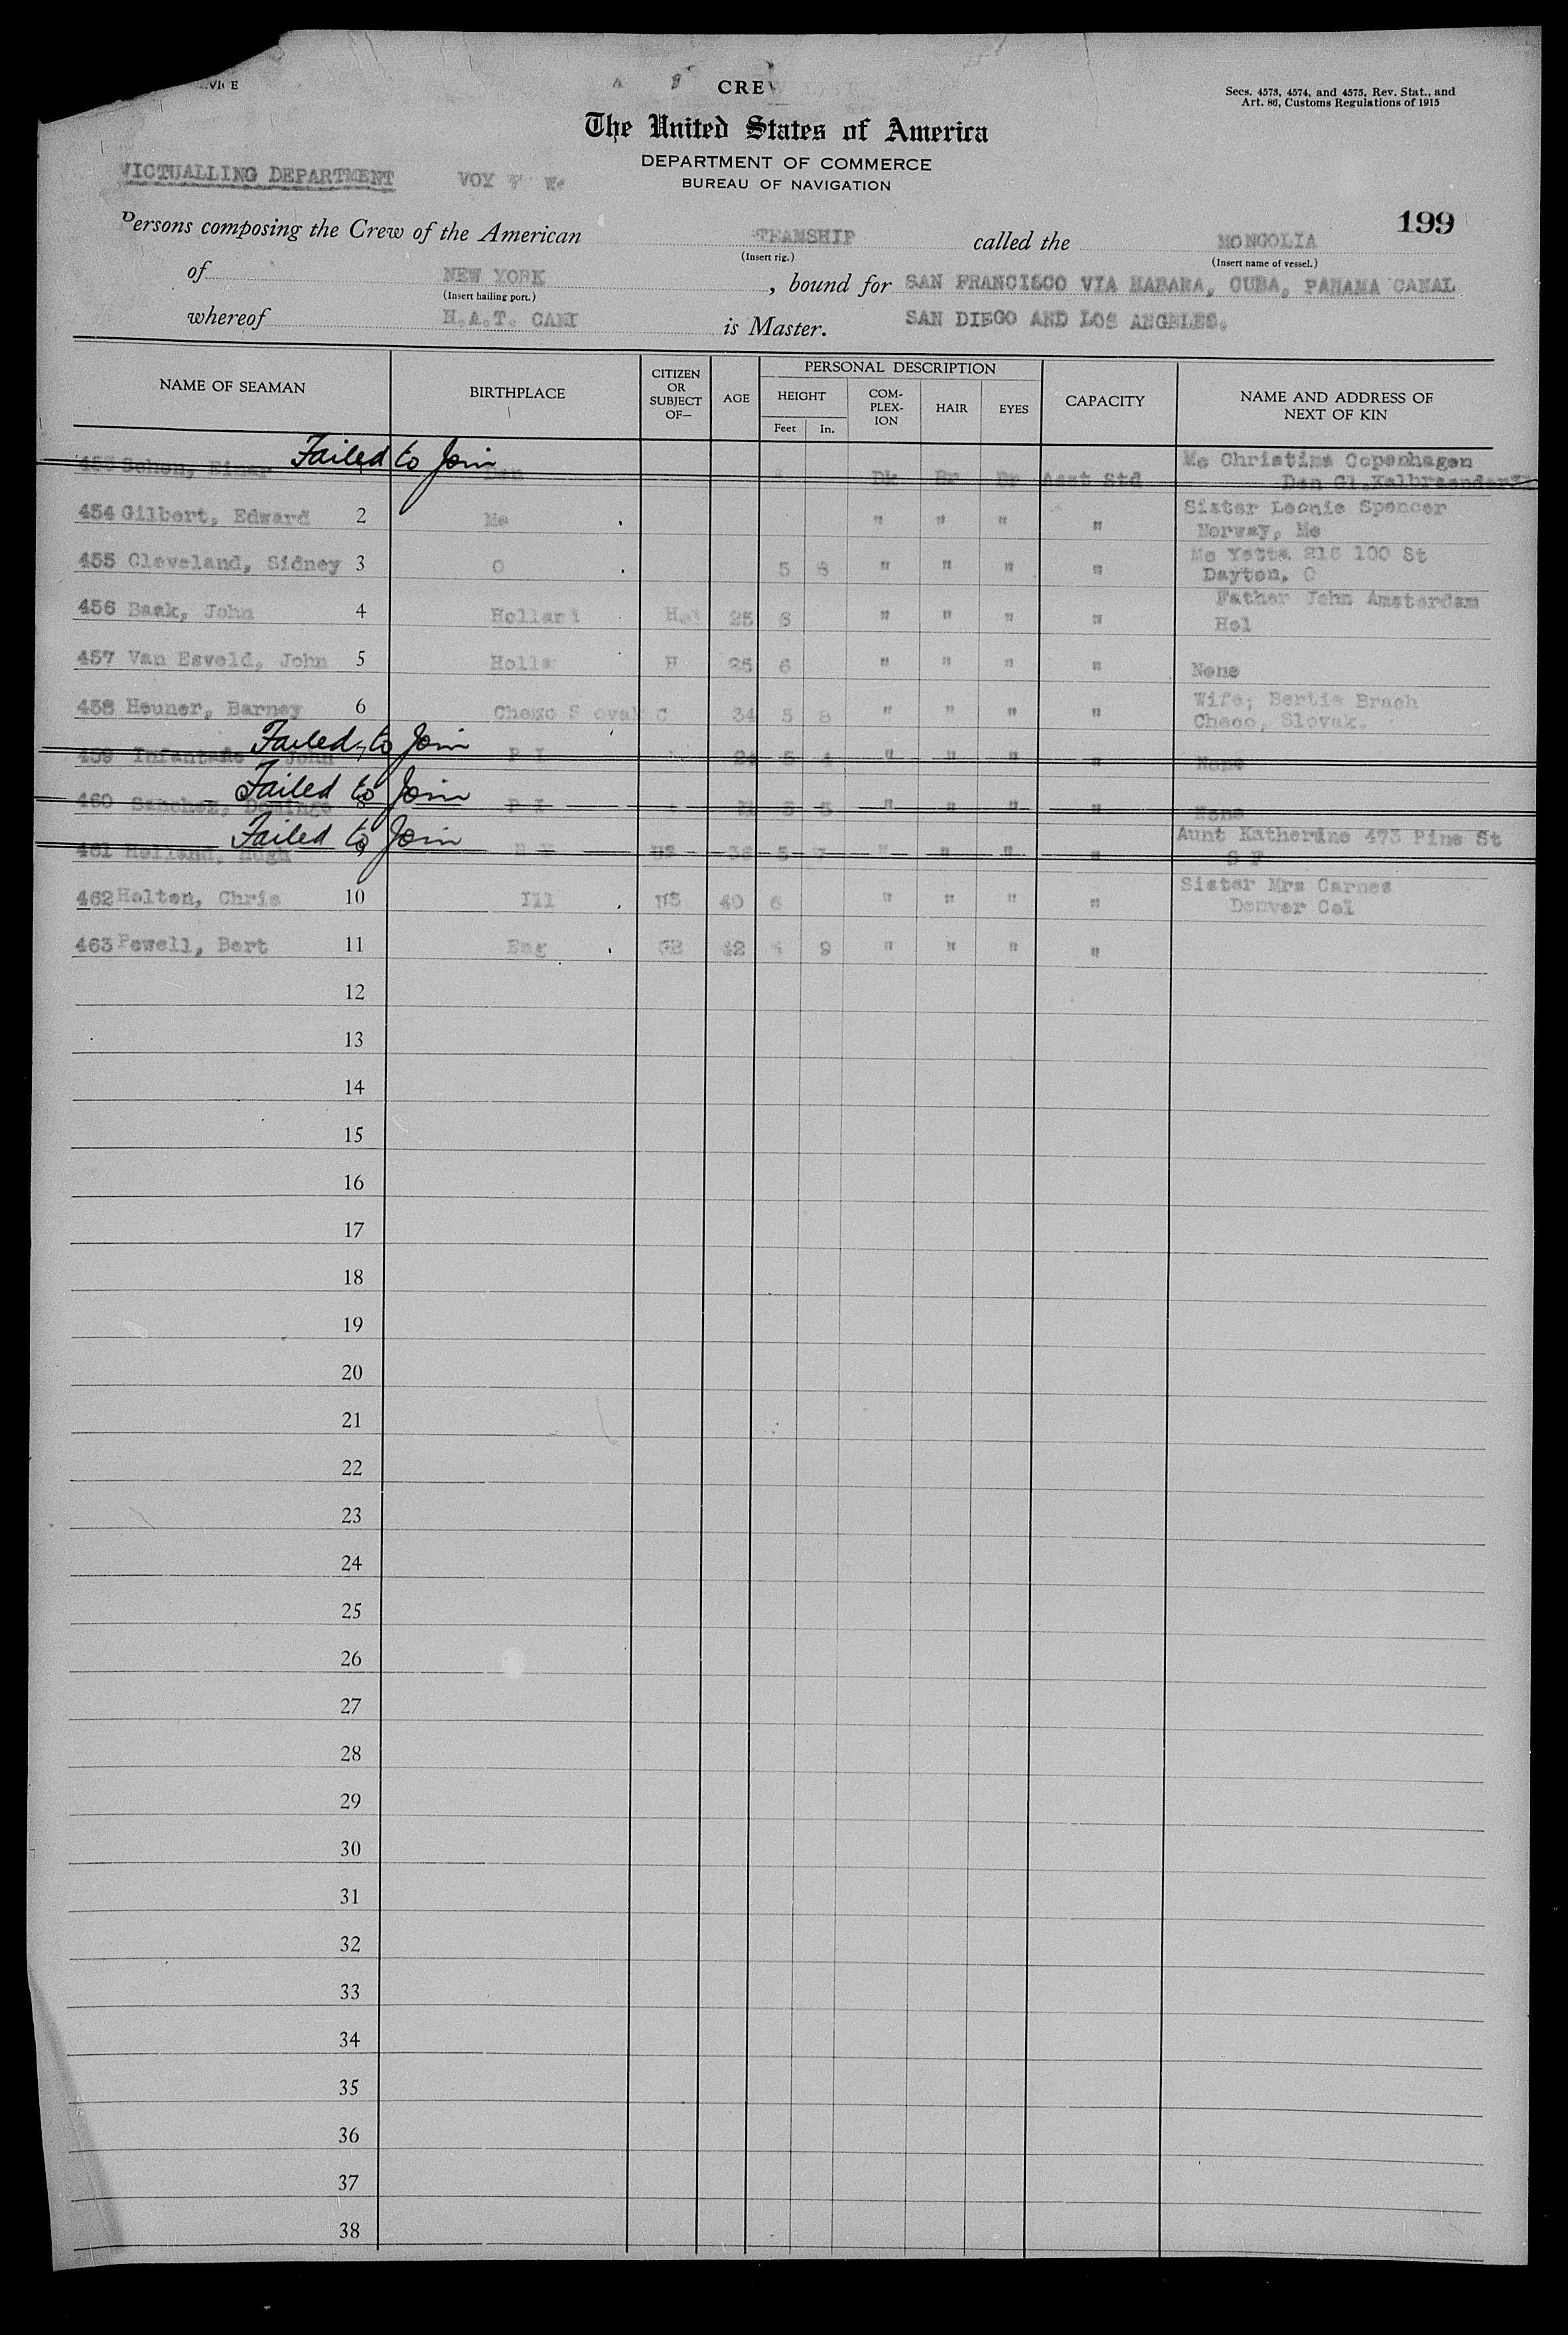 CRE
Secs. 4573, 4574, and 4575, Rev. Stat., and
Art. 86, Customs Regulations of 1915
The United States of America
DEPARTMENT OF COMMERCE
BUREAU OF NAVIGATION
VICTUALLING DEPARTMENT VOY
199
Persons composing the Crew of the American TEAMSHIP called the MONGOLIA
(Insert rig.) (Insert name of vessel.)
of NEW YORK, bound for SAN FRANCISCO VIA HABANA, CUBA, PANAMA CANAL
(Insert hailing port.)
whereof H.A.T. is Master. SAN DIEGO AND LOS ANGELES.
NAME OF SEAMAN BIRTHPLACE CITIZEN OR SUBJECT OF— AGE PERSONAL DESCRIPTION CAPACITY NAME AND ADDRESS OF NEXT OF KIN
HEIGHT COM-PLEX-ION HAIR EYES
Feet In.
Failed to Join
Schon, Einar Dk Br Br Asst Std Mo Christina Copenhagen
Den
454 Gilbert, Edward 2 Me " " " " Sister Leonie Spencer
Norway, Me
455 Cleveland, Sidney 3 O 5 8 " " " " Mo Yetta 100 St
Dayton, O
456 Baak, John 4 25 " " " " Father John Amsterdam
Hol
457 Van Esveld, John 5 Holla H 6 " " " " None
458 Heuner, Barney 6 C 34 5 8 " " " " Wife; Bertie Brach
Checo, Slovak.
Failed to Join
459 John 7 P I 5 4 " " " " None
Failed to Join
460 Sanchez, Domingo 8 P I 5 5 " " " " None
Failed to Join
461 Holland, Hugh 9 US 36 5 7 " " " " Aunt Katherine 473 Pine St
S F
462 Holton, Chris 10 Ill US 40 6 " " " " Sister Mrs Carnes
Denver Col
463 Powell, Bert 11 Eng GB 42 9 " " " "
12
13
14
15
16
17
18
19
20
21
22
23
24
25
26
27
28
29
30
31
32
33
34
35
36
37
38